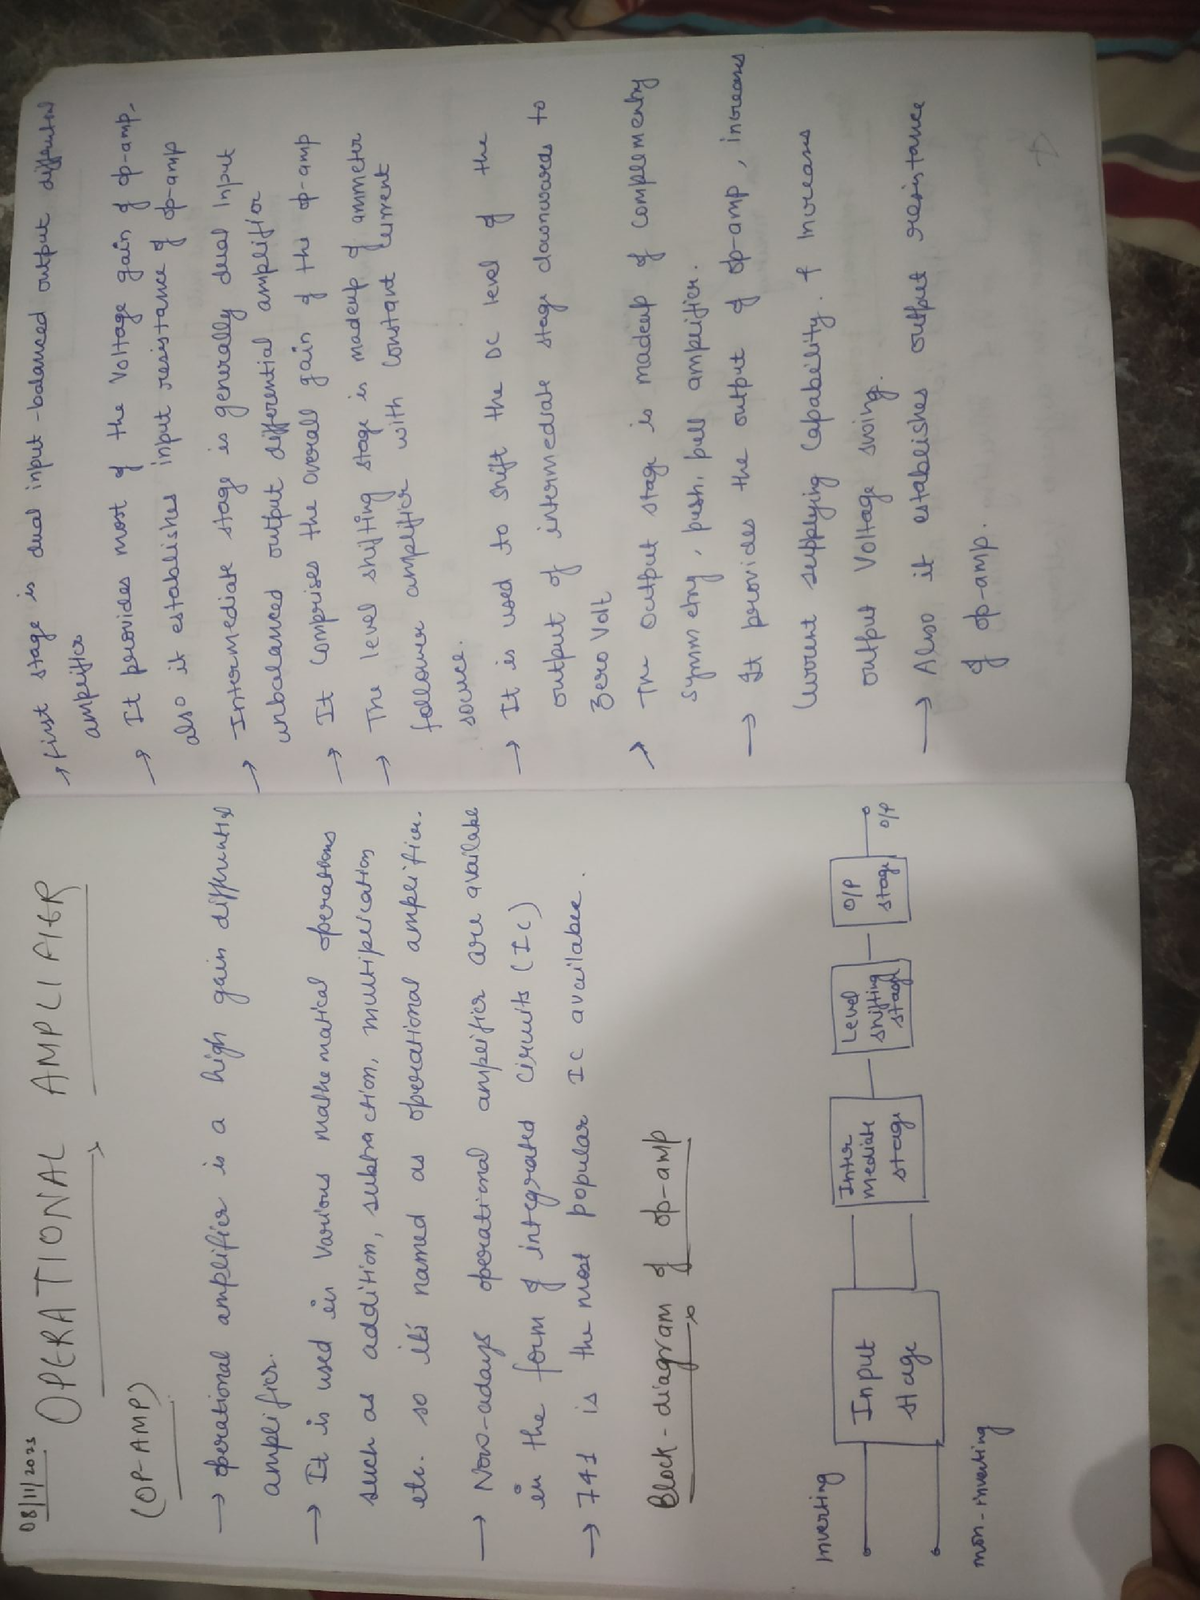 08/11/2023
OPERATIONAL AMPLIFIER
(OP-AMP)
→ operational amplifier is a high gain differential
amplifier.
→ It is used in various mathematical operations
such as addition, subtraction, multiplication
etc. so its named as operational amplifier.
→ Now-adays operational amplifier are available
in the form of integrated circuits (IC)
→ 741 is the most popular IC available.
Block-diagram of op-amp
Inverting
non-inverting
Input
stage
Inter
mediate
stage
Level
shifting
stage
O/P
stage
O/P
→ First stage is dual input-balanced output differential
amplifier
→ It provides most of the voltage gain of op-amp.
also it establishes input resistance of op-amp
→ Intermediate stage is generally dual input
unbalanced output differential amplifier
→ It comprises the overall gain of the op-amp
→ The level shifting stage is madeup of ammeter
follower amplifier with constant current
source.
→ It is used to shift the DC level of the
output of intermediate stage downwards to
zero volt
→ The output stage is madeup of complementry
symmetry, push, pull amplifier.
→ It provides the output of op-amp, increases
current supplying capability. & increases
output voltage swing.
→ Also it establishes output resistance
of op-amp.